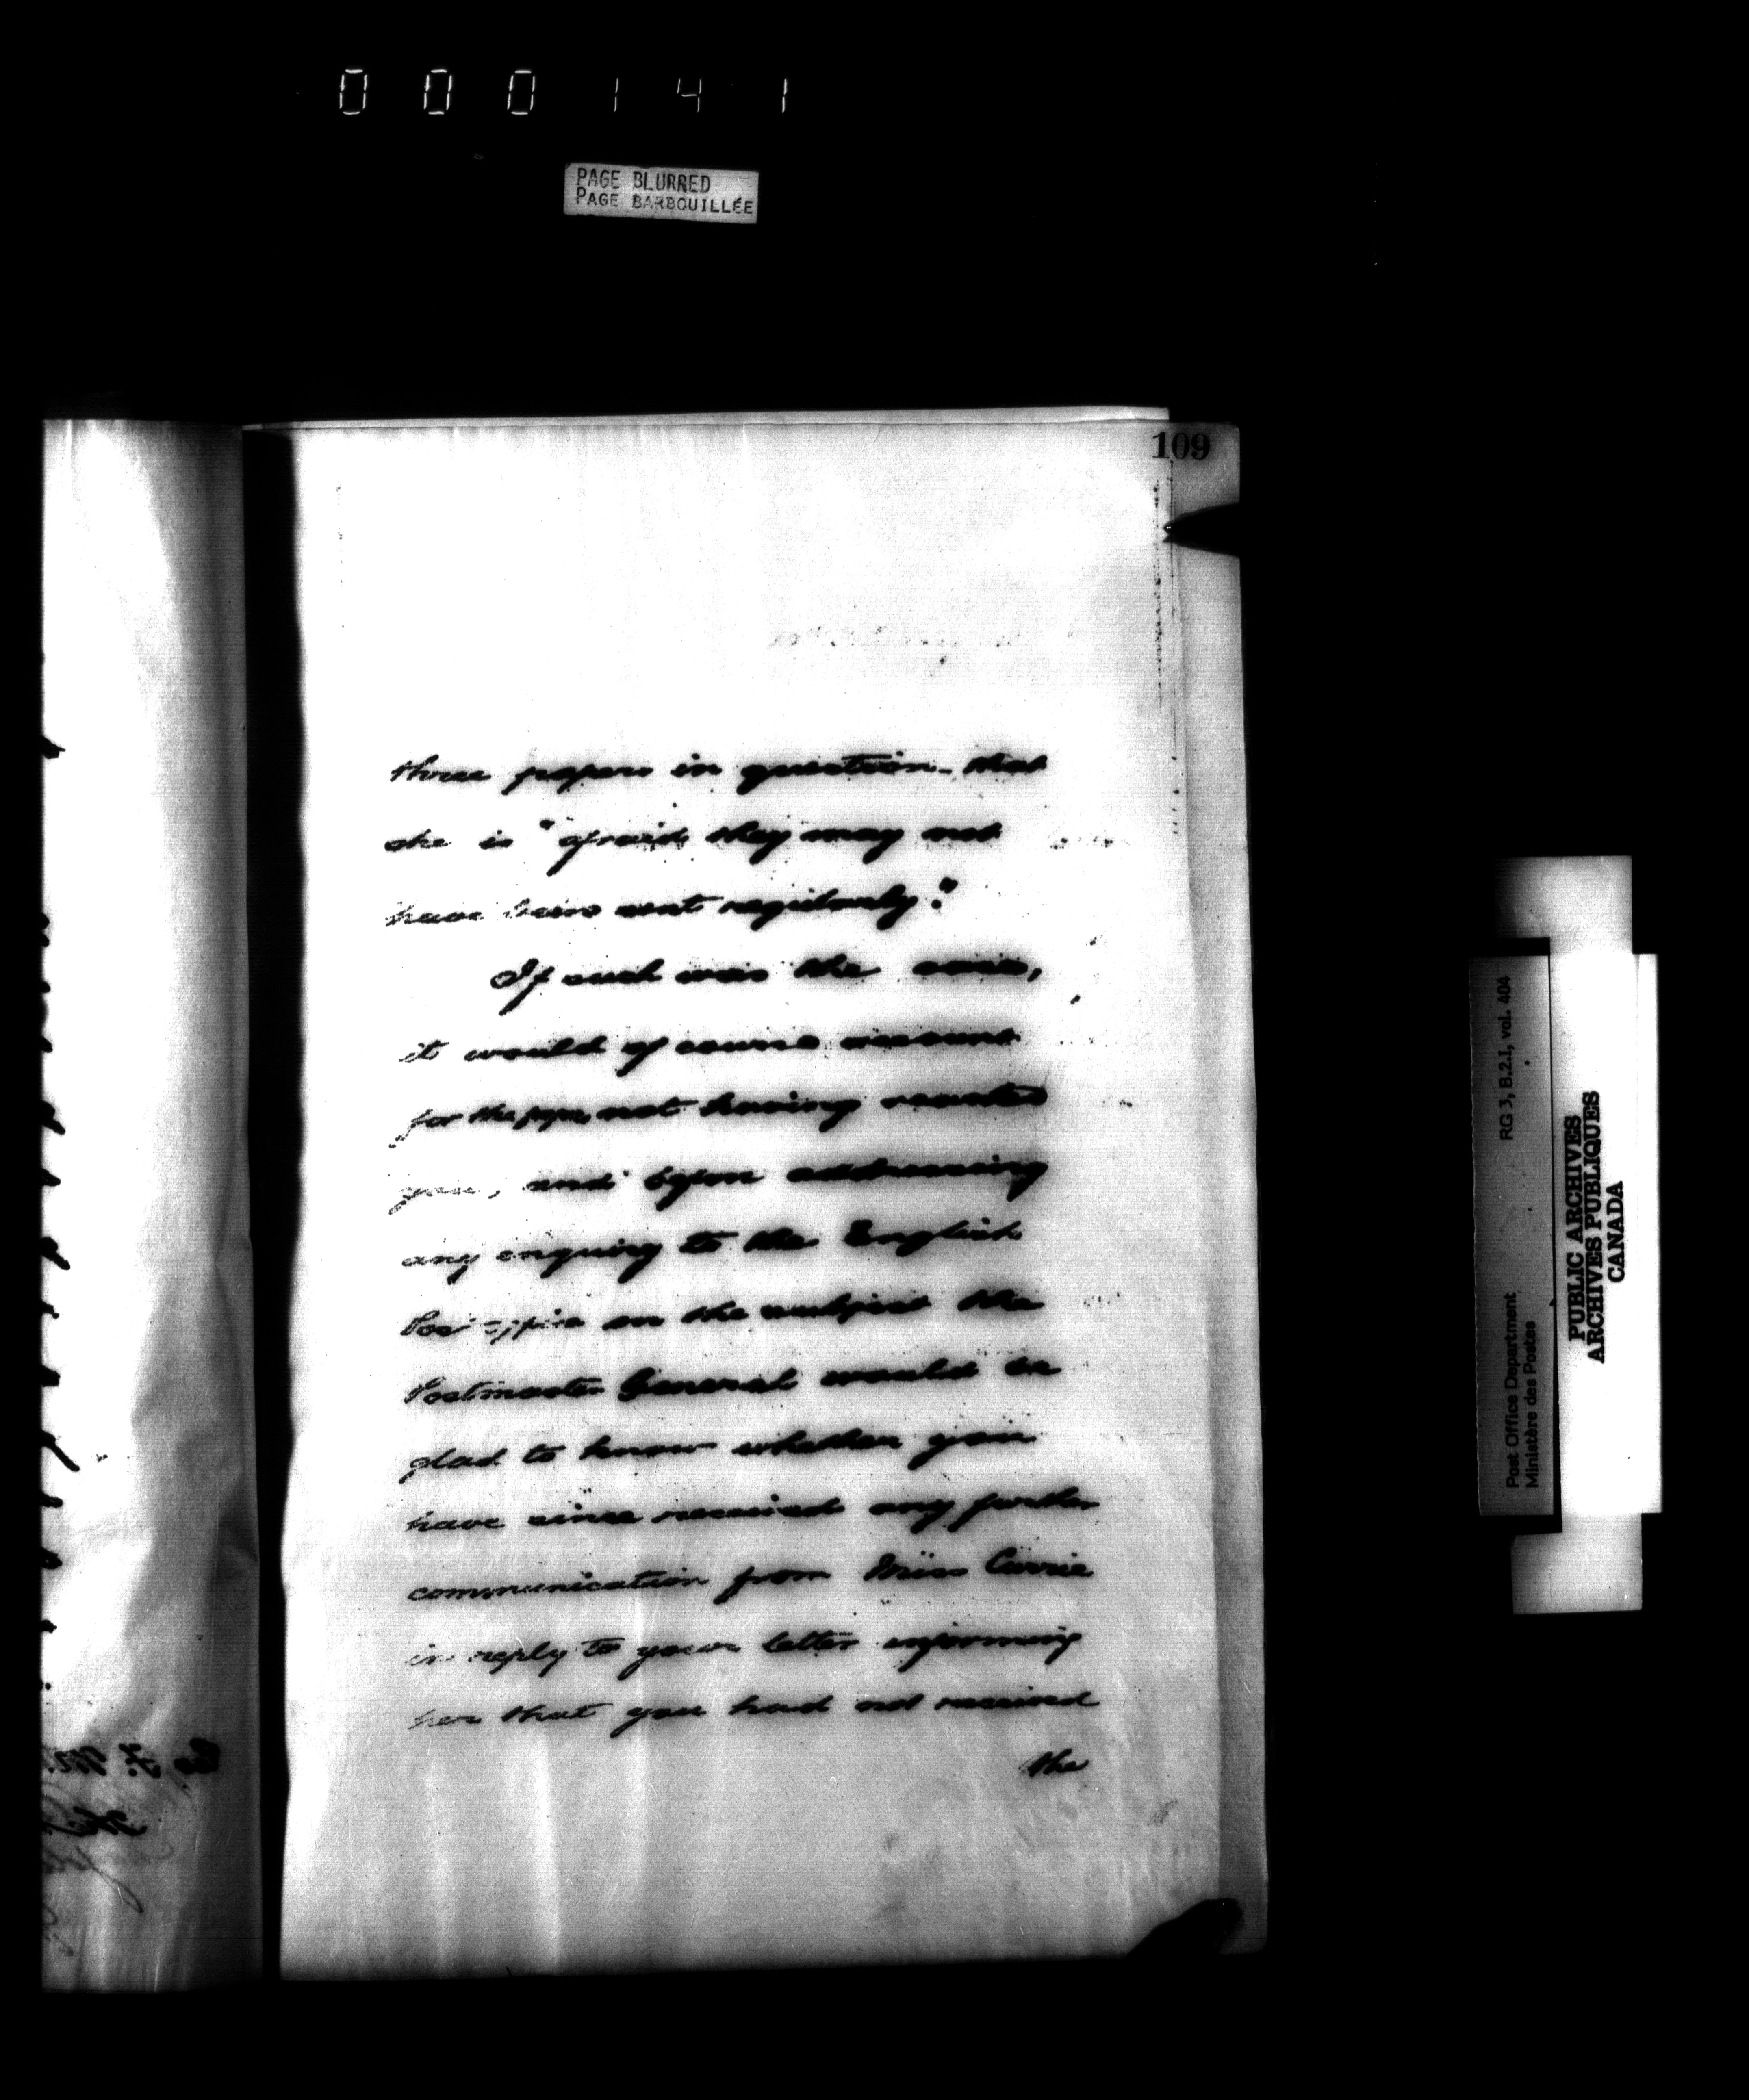 000141
PAGE BLURRED
PAGE BARBOUILLÉE
109
three papers in question - that
she is "afraid they may not
have been sent regularly."
If such was the case,
it would of course account
for the paper not having reached
you, and before addressing
any enquiry to the English
Post office on the subject the
Postmaster General would be
glad to know whether you
have since received any further
communication from Miss Currie
in reply to your letter informing
her that you had not received
the
Post Office Department RG 3, B.2.I, vol. 404
Ministère des Postes
PUBLIC ARCHIVES
ARCHIVES PUBLIQUES
CANADA